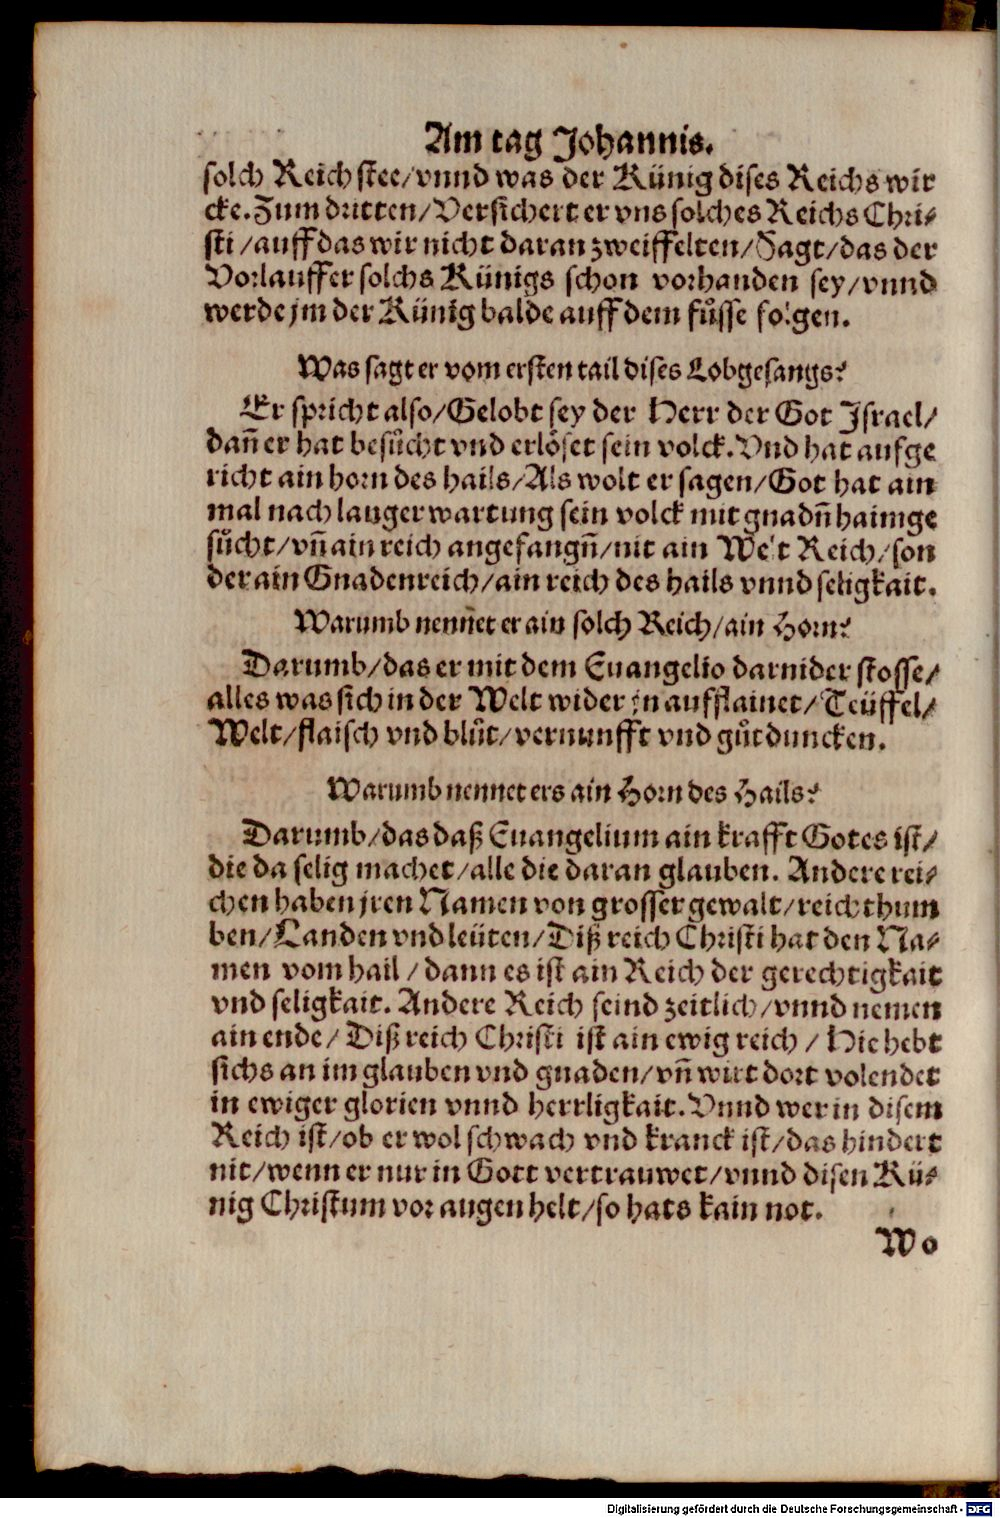 Am tag Johannis.
solch Reich stee/vnnd was der Künig dises Reichs wir
cke. Zum dritten/Versichert er vns solches Reichs Chri⸗
sti/auff das wir nicht daran zweiffelten/Sagt/das der
Vorlauffer solchs Künigs schon vorhanden sey/vnnd
werde jm der Künig balde auff dem fuͦsse folgen.
Was sagt er vom ersten tail dises Lobgesangs?
Er spricht also/Gelobt sey der Herr der Got Israel/
dañ er hat besuͦcht vnd erlöset sein volck. Vnd hat aufge
richt ain horn des hails/Als wolt er sagen/Got hat ain
mal nach langer wartung sein volck mit gnadñ haimge
suͦcht/vñ ain reich angefangñ/nit ain Welt Reich/son
der ain Gnadenreich/ain reich des hails vnnd seligkait.
Warumb nennet er ain solch Reich/ain Horn?
Darumb/das er mit dem Euangelio darnider stosse/
alles was sich in der Welt wider jn aufflainet/Teüffel/
Welt/flaisch vnd bluͦt/vernunfft vnd guͦtduncken.
Warumb nennet ers ain Horn des Hails?
Darumb/das daß Euangelium ain krafft Gotes ist/
die da selig machet/alle die daran glauben. Andere rei⸗
chen haben jren Namen von grosser gewalt/reichthum
ben/Landen vnd leüten/Diß reich Christi hat den Na⸗
men vom hail/dann es ist ain Reich der gerechtigkait
vnd seligkait. Andere Reich seind zeitlich/vnnd nemen
ain ende/Diß reich Christi ist ain ewig reich/Hie hebt
sichs an im glauben vnd gnaden/vñ wirt dort volendet
in ewiger glorien vnnd herrligkait. Vnnd wer in disem
Reich ist/ob er wol schwach vnd kranck ist/das hindert
nit/wenn er nur in Gott vertrauwet/vnnd disen Kü⸗
nig Christum vor augen helt/so hats kain not.
Wo
Digitalisierung gefördert durch die Deutsche Forschungsgemeinschaft - DFG